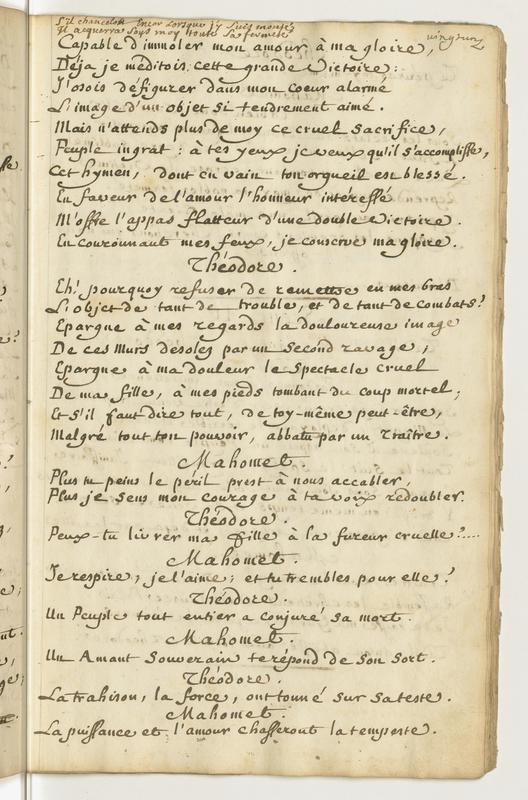 S'il chanceloit encor lorsque j'y suis monté,
Il acquerra sous moy toute sa fermeté.
vingt un
Capable d'immoler mon amour à ma gloire,
Déja je méditois cette grande Victoire :
J'osois défigurer dans mon coeur alarmé
L'image d'un objet si tendrement aimé.
Mais n'attends plus de moy ce cruel sacrifice,
Peuple ingrat : à tes yeux je veux qu'il s'accomplisse,
Cet hymen, dont en vain ton orgueil est blessé.
En faveur de l'amour l'honneur intéressé
M'offre l'appas flatteur d'une double Victoire.
En couronnant mes feux, je conserve ma gloire.
Théodore.
Eh! pourquoy refuser de remettre en mes bras
L'objet de tant de trouble, et de tant de combats?
Epargne à mes regards la douloureuse image
De ces Murs désolés par un second ravage ;
Epargne à ma douleur le spectacle cruel
De ma fille, à mes pieds tombant du coup mortel ;
Et s'il faut dire tout, de toy-même peut-être,
Malgré tout ton pouvoir, abbatu par un Traître.
Mahomet.
Plus tu peins le péril prest à nous accabler,
Plus je sens mon courage à ta voix redoubler.
Théodore.
Peux-tu livrer ma fille à la fureur cruelle?....
Mahomet.
Je respire, je l'aime ; et tu trembles pour elle?
Théodore.
Un Peuple tout entier a conjuré sa mort.
Mahomet.
Un Amant Souverain te répond de son sort.
Théodore.
La trahison, la force, ont tonné sur sa teste.
Mahomet.
La puissance et l'amour chasseront la tempeste.